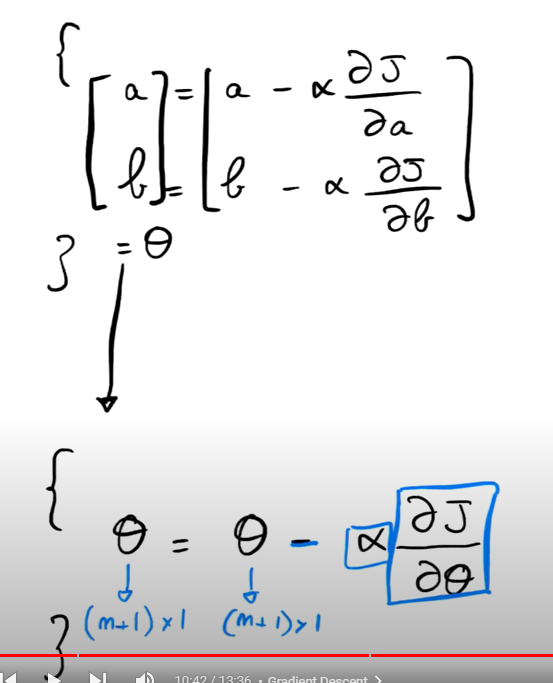 {
[a] = [a - α ∂J/∂a]
[b] = [b - α ∂J/∂b]
} = θ
{
θ = θ - α ∂J/∂θ
(m+1)×1 (m+1)×1
}
10:42 / 13:36 • Gradient Descent >